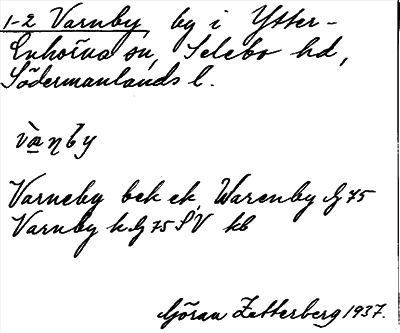 1-2 Varnby, by i Ytter-
Enhörna sn, Selebo hd,
Södermanlands l.
vàṇby
Varneby bek ek, Warenby G 75
Varnby k. G 75 SV kb
Göran Zetterberg 1937.